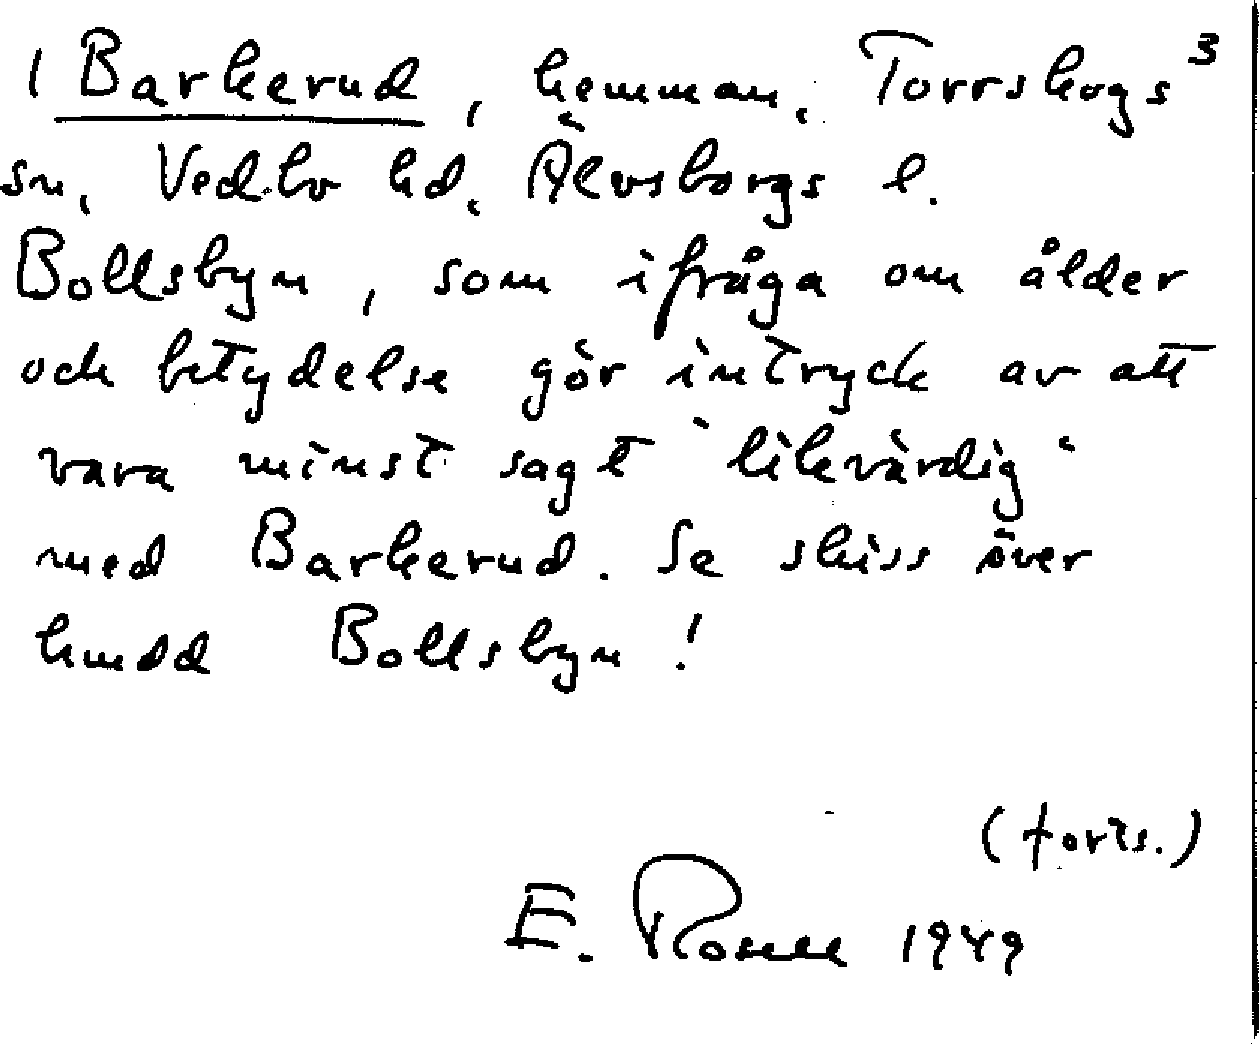 1 Barkerud, hemman, Torrskogs 3
sn, Vedbo hd, Älvsborgs l.
Bollsbyn, som ifråga om ålder
och betydelse gör intryck av att
vara minst sagt "likvärdig"
med Barkerud. Se skiss över
hmdd Bollsbyn!
(forts.)
E. Rosell 1949